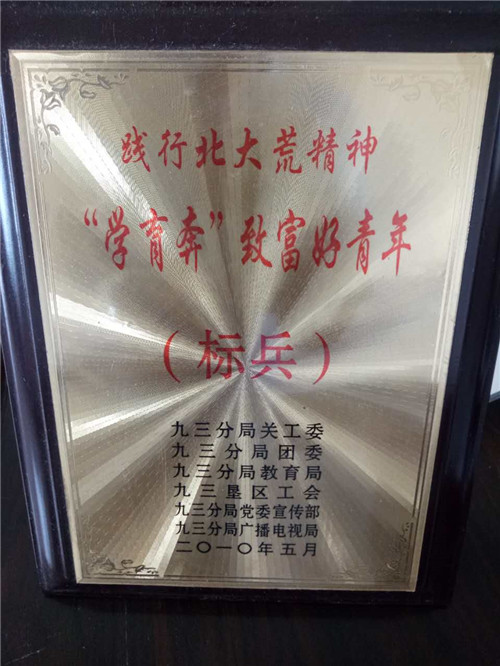 践行北大荒精神
“学育奔”致富好青年
（标兵）
九三分局关工委
九三分局团委
九三分局教育局
九三垦区工会
九三分局党委宣传部
九三分局广播电视局
二〇一〇年五月